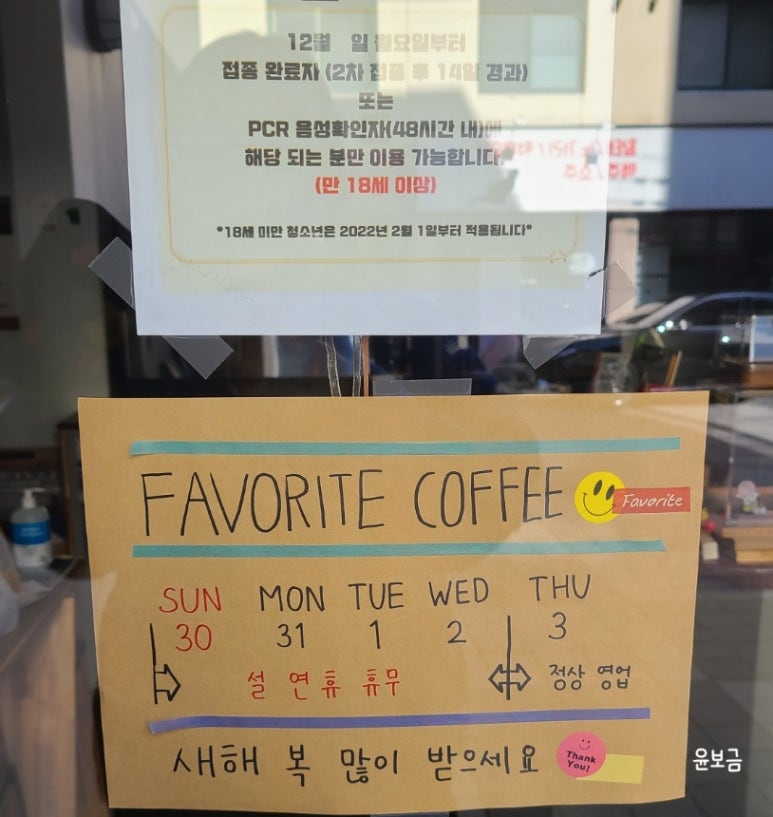 12월 일 월요일부터
접종 완료자 (2차 접종 후 14일 경과)
또는
PCR 음성확인자(48시간 내)에
해당 되는 분만 이용 가능합니다.
(만 18세 이상)
*18세 미만 청소년은 2022년 2월 1일부터 적용됩니다*
FAVORITE COFFEE
Favorite
SUN MON TUE WED THU
30 31 1 2 3
설 연휴 휴무 정상 영업
새해 복 많이 받으세요
Thank You!
윤보금